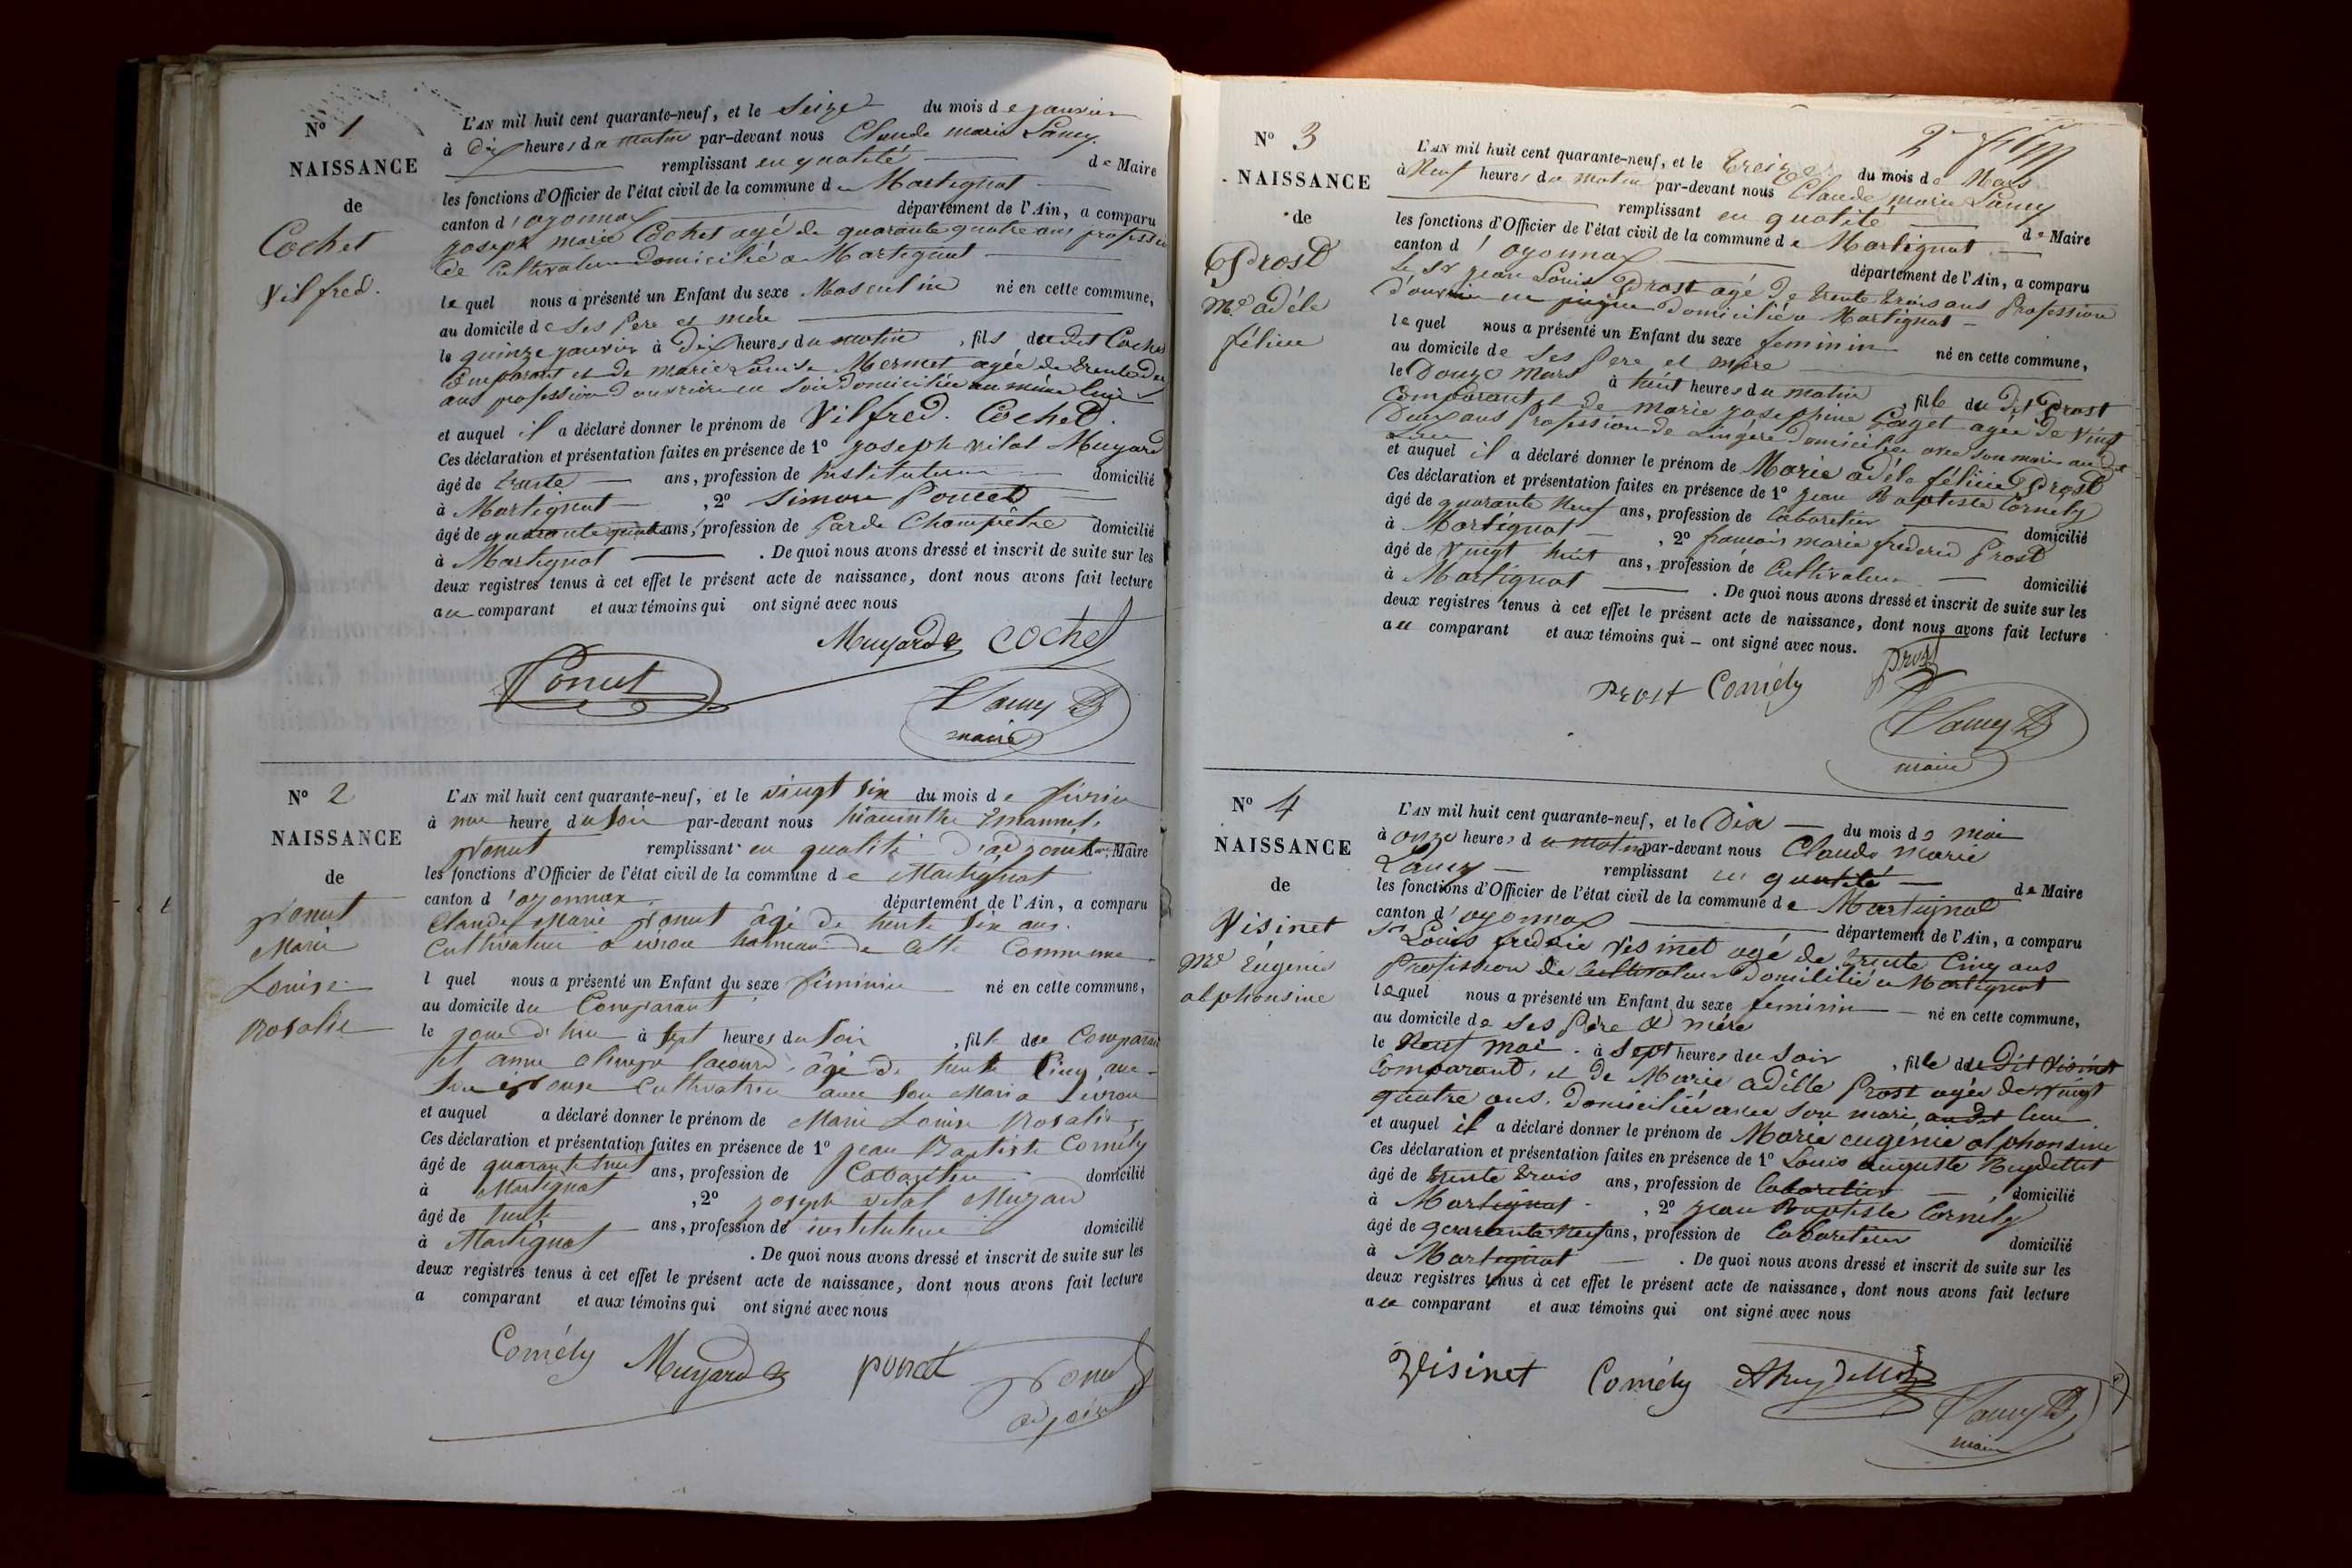 N° 1
NAISSANCE
de
Cochet
Vilfred.
L'AN mil huit cent quarante-neuf, et le Seize du mois de janvier
à Dix heures du matin par-devant nous Claude marie Lancy
remplissant en qualité de Maire
les fonctions d'Officier de l'état civil de la commune de Martignat
canton d'oyonnax département de l'Ain, a comparu
joseph marie Cochet agé de quarante quatre ans profession
de Cultivateur domicilié a Martignat
lequel nous a présenté un Enfant du sexe Masculin né en cette commune,
au domicile de ses père et mère
le quinze janvier à Dix heures du matin, fils du dit Cochet
Comparant et de marie Louise Mermet agée de trente deux
ans profession d'ouvrière en soie domiciliée au même lieu
et auquel il a déclaré donner le prénom de Vilfred. Cochet.
Ces déclaration et présentation faites en présence de 1° joseph vital Muyard
âgé de trente ans, profession de instituteur domicilié
à Martignat, 2° Simon Poncet
âgé de quarante quatre ans, profession de Garde Champêtre domicilié
à Martignat. De quoi nous avons dressé et inscrit de suite sur les
deux registres tenus à cet effet le présent acte de naissance, dont nous avons fait lecture
au comparant et aux témoins qui ont signé avec nous
Muyard Cochet
Poncet
Lancy
maire
N° 2
NAISSANCE
de
Poncet
Marie
Louise
Rosalie
L'AN mil huit cent quarante-neuf, et le vingt six du mois de février
à une heure du soir par-devant nous hiacinthe Emanuel
Poncet remplissant en qualité d'adjoint de Maire
les fonctions d'Officier de l'état civil de la commune de Martignat
canton d'oyonnax département de l'Ain, a comparu
Claude Marie Poncet âgé de trente six ans.
Cultivateur a évron hameau de Cette Commune
l quel nous a présenté un Enfant du sexe féminin né en cette commune,
au domicile du Comparant
le jour d'hier à sept heures du soir, fille du Comparant
et anne âgé de trente Cinq ans
Son épouse Cultivatrice avec son Mari a évron
et auquel a déclaré donner le prénom de Marie Louise Rosalie
Ces déclaration et présentation faites en présence de 1° jean Baptiste Comély
âgé de quarante neuf ans, profession de Cabaretier domicilié
à Martignat, 2° joseph vital Muyard
âgé de trente ans, profession de instituteur domicilié
à Martignat. De quoi nous avons dressé et inscrit de suite sur les
deux registres tenus à cet effet le présent acte de naissance, dont nous avons fait lecture
a comparant et aux témoins qui ont signé avec nous
Comély Muyard poncet Poncet
adjoint
N° 3
NAISSANCE
de
Prost
Me adéle
féline
L'AN mil huit cent quarante-neuf, et le treize du mois de Mars
à Neuf heures du matin par-devant nous Claude marie Lancy
remplissant en qualité de Maire
les fonctions d'Officier de l'état civil de la commune de Martignat
canton d'oyonnax département de l'Ain, a comparu
Le Sr jean Louis Prost agé de trente trois ans Profession
d'ouvrier en peigne domicilié a Martignat
lequel nous a présenté un Enfant du sexe feminin né en cette commune,
au domicile de ses père et mère
le Douze Mars à huit heures du matin, fille du dit Prost
Comparant et de marie josephine Goyet agée de vingt
Deux ans Profession de Lingère domiciliée avec son mari au dit
Lieu
et auquel il a déclaré donner le prénom de Marie adéle féline Prost
Ces déclaration et présentation faites en présence de 1° jean Baptiste Comély
âgé de quarante Neuf ans, profession de Cabaretier domicilié
à Martignat, 2° françois marie frederic Prost
âgé de vingt huit ans, profession de Cultivateur domicilié
à Martignat. De quoi nous avons dressé et inscrit de suite sur les
deux registres tenus à cet effet le présent acte de naissance, dont nous avons fait lecture
au comparant et aux témoins qui ont signé avec nous.
Prost Comély Prost
Lancy
maire
N° 4
NAISSANCE
de
Visinet
Me Eugénie
alphonsine
L'AN mil huit cent quarante-neuf, et le Dix du mois de mai
à onze heures du matin par-devant nous Claude Marie
Lancy remplissant en qualité de Maire
les fonctions d'Officier de l'état civil de la commune de Martignat
canton d'oyonnax département de l'Ain, a comparu
Sr Louis frederic Visinet agé de trente Cinq ans
Profession de Cultivateur domicilié a Martignat
lequel nous a présenté un Enfant du sexe feminin né en cette commune,
au domicile de ses père et mère
le Neuf mai à sept heures du soir, fille du dit Visinet
Comparant, et de Marie adélle Prost agée de vingt
quatre ans, domiciliée avec son mari, au dit lieu
et auquel il a déclaré donner le prénom de Marie eugénie alphonsine
Ces déclaration et présentation faites en présence de 1° Louis auguste
âgé de trente trois ans, profession de Cabaretier domicilié
à Martignat, 2° jean Baptiste Comély
âgé de quarante neuf ans, profession de Cabaretier domicilié
à Martignat. De quoi nous avons dressé et inscrit de suite sur les
deux registres tenus à cet effet le présent acte de naissance, dont nous avons fait lecture
au comparant et aux témoins qui ont signé avec nous
Visinet Comély
Lancy
maire